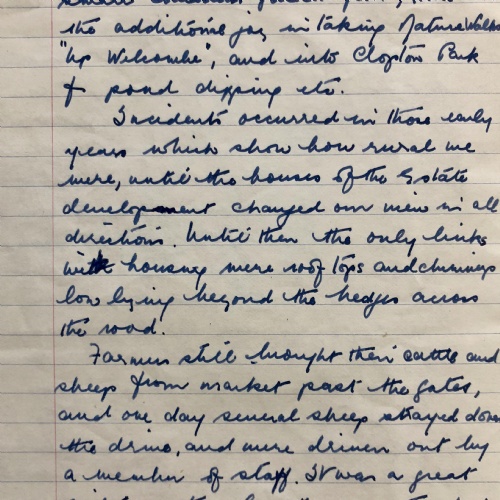 the additional joy in taking Nature Walks
"up Welcombe", and into Clopton Park
& pond dipping etc.
Incidents occurred in those early
years which show how rural we
were, until the houses of the Estate
development changed our view in all
directions. Until then the only links
with housing were roof tops and chimneys
low lying beyond the hedges across
the road.
Farmers still brought their cattle and
sheep from market past the gates,
and one day several sheep strayed down
the drive, and were driven out by
a member of staff. It was a great